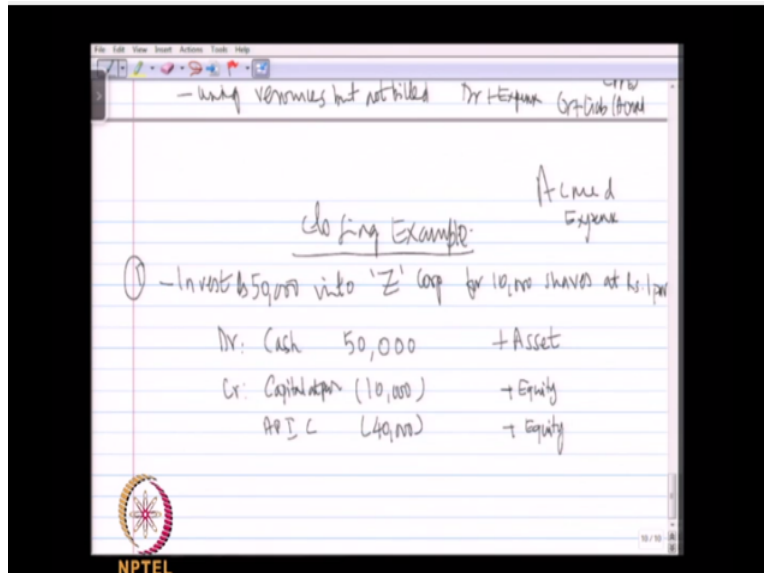 File Edit View Insert Actions Tools Help
- using resources but not billed Dr + Expense Cr + Liab (Accrued
Accrued
Expense
Closing Example.
① - Invest Rs 50,000 into 'Z' Corp for 10,000 shares at Rs. 1 par
Dr: Cash 50,000 + Asset
Cr: Capital at par (10,000) + Equity
APIC (40,000) + Equity
10/10
NPTEL